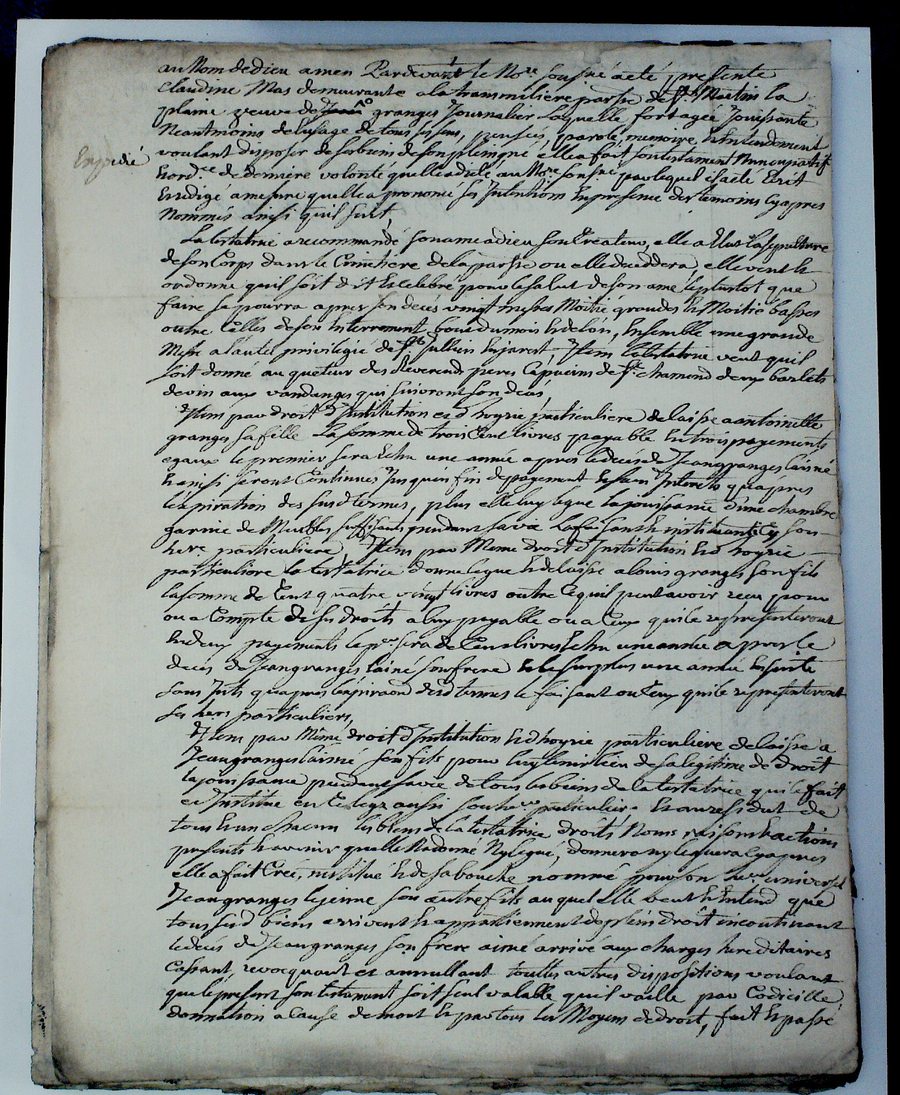 au Nom de dieu amen Pardevant le No.re sousné a eté presente
Claudine Mas demeurante a la transmiliere parsse de St Martin la
plaine veuve de granges Journalier Laquelle fort agée Jouissante
Neantmoins de l'usage de tous ses sens, pensées, parole, memoire, & Entendement
Expedié
voulant disposer de ses biens de son plein gré elle a fait son testament Nuncupatif
& ord.ce de derniere volonté quelle a dicté au No.re sousné par lequel il a eté Ecrit
& redigé a mesure quelle a prononcé ses Intentions En presence des temoins cy apres
Nommés ainsi quil suit,
La testatrice a recommandé son ame a dieu son Createur, elle a Elut la sepulture
de son Corps dans le Cimitiere de la parsse ou elle deceddera, elle veut &
ordonne quil soit dit & Celebré pour le salut de son ame le plustot que
faire se pourra apres son decés vingt messes Moitié grandes & Moitié basses
outre Celles de son Enterrement, bout du mois & de l'an, Ensemble une grande
Messe a l'autel privilegié de St Jullien En jarest, Item la testatrice veut quil
soit donné au queteur des Reverends peres Capucins de St chamond deux barlets
de vin aux vandanges qui suivront son decés,
Item par droit d'Institution et d'hoyrie particuliere delaisse a antoinette
granges sa fille La somme de trois Cent livres payable En trois payements
egaux le premier sera Echu une année apres le decés de Jean granges laisné
& ainsi seront Continués Jusqu'en fin de payement & sans Interets qu'apres
l'expiration des susd termes, plus elle luy legue la jouissance d'une chambre
garnie de Meubles suffisants pendant sa vie la faisant & instituant En son
here particuliere, Item par Meme droit d'Institution & d'hoyrie
particuliere la testatrice donne legue & delaisse a louis granges son fils
la somme de Cent quatre vingt livres outre Ce quil peut avoir reçu pour
ou a Compte de ses droits a luy payable ou a Ceux qui le representeront
En deux payements le p.er sera de Cent livres Echu une année apres le
decés de Jean granges l'ainé son frere & le surplus une année Ensuite
sans Ints qu'apres l'expiraon desd termes le faisant ou Ceux qui le representeront
ses hers particuliers,
Item par Meme droit d'Institution & d'hoyrie particuliere delaisse a
Jean granges laisné son fils pour luy tenir lieu de sa legitime de droit
la jouissance pendant sa vie de tous les biens de la testatrice qui le fait
et Institue En Celuy aussi son her particulier & au residut de
tous & un chacun les biens de la testatrice droits Noms raisons & actions
presents & avenir quelle Nadonné Ny legué, donnera ny leguera Cy apres
elle a fait Créé, institué & de sa bouche nommé pour son her universel
Jean granges le jeune son autre fils auquel elle veut & Entend que
tous sesd biens arrivent & appartiennent de plein droit incontinant
le decés de Jean granges son frere aisné arrivé aux charges hereditaires
Cassant, revocquant et annullant touttes autres dispositions voulant
que le present son testament soit seul valable quil vaille par Codicille
donnaison a Cause de mort & par tous les Moyens de droit, fait & passé